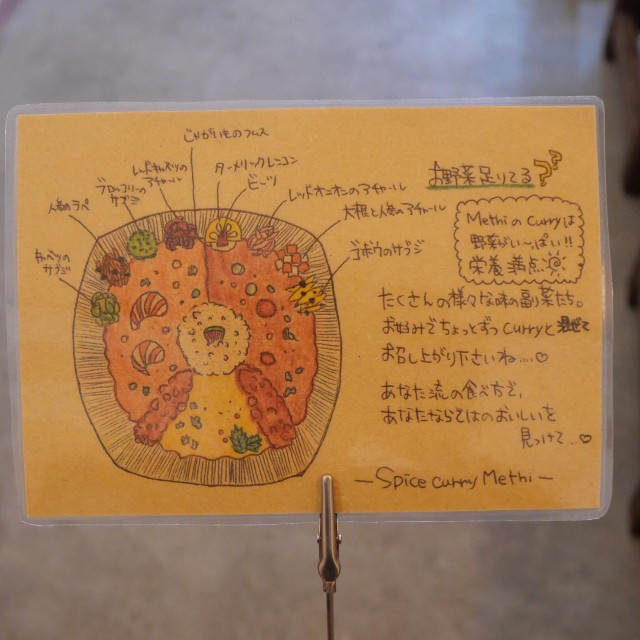 じゃがいものフムス
レッドキャベツの
アチャール
ターメリックレンコン
ビーツ
ブロッコリーの
サブジ
レッドオニオンのアチャール
人参のラペ
大根と人参のアチャール
キャベツの
サブジ
ゴボウのサブジ
お野菜足りてる??
Methi の Curryは
野菜がい〜っぱい!!
栄養満点
たくさんの様々な味の副菜たち。
お好みでちょっとずつ curryと混ぜて
お召し上がり下さいね....♡
あなた流の食べ方で、
あなたならではのおいしいを
見つけて...♡
— Spice curry Methi —